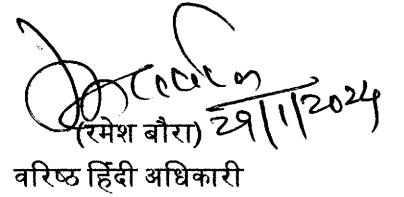 29/1/2024
(रमेश बौरा)
वरिष्ठ हिंदी अधिकारी